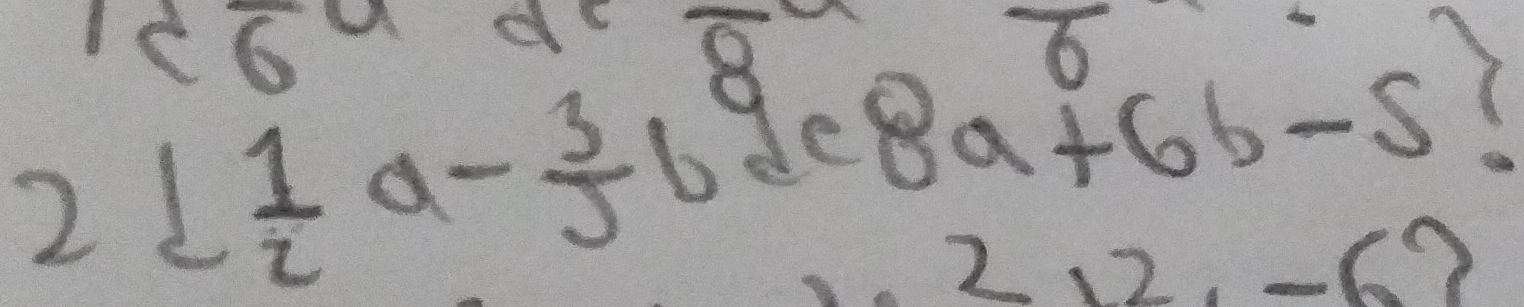 6 de 8 6
2 ¿ 1/2 a - 3/5 b de 8a + 6b - 5?
2 2 - 6?